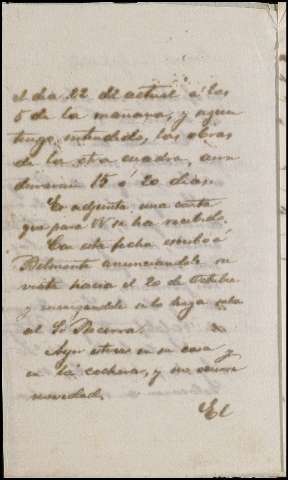 el dia 22 del actual á las
5 de la mañana, y segun
tengo entendido, las obras
de la otra cuadra, aun
durarán 15 ó 20 dias.
Es adjunta una carta
que para V. se ha recibido.
Con esta fecha escribo á
Belmonte anunciandole su
viaje hacia el 20 de Octubre
y encargandole se lo haga saber
al Sr Becerra.
Ayer estuve en su casa y
en la cochera, y no ocurre
novedad.
El